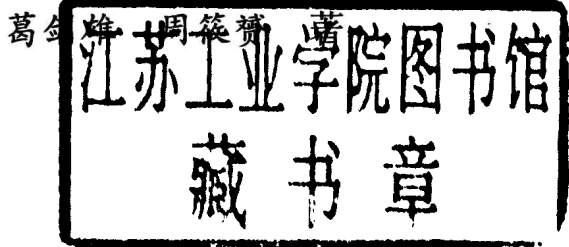 葛剑雄 周筱赟 著
江苏工业学院图书馆
藏书章